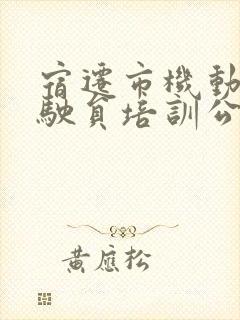 宿遷市機動
駛員培訓公
黃應松